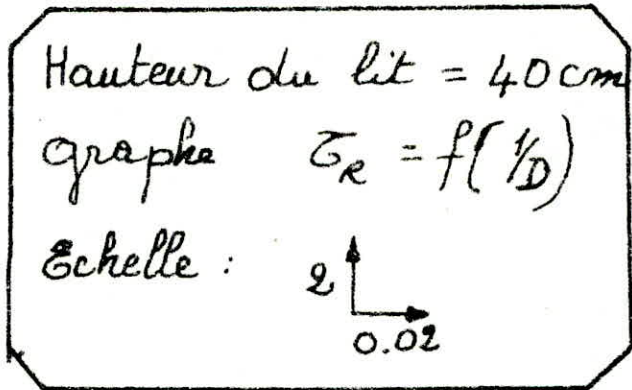 Hauteur du lit = 40 cm
graphe τ_R = f(1/D)
Echelle :
2
0.02